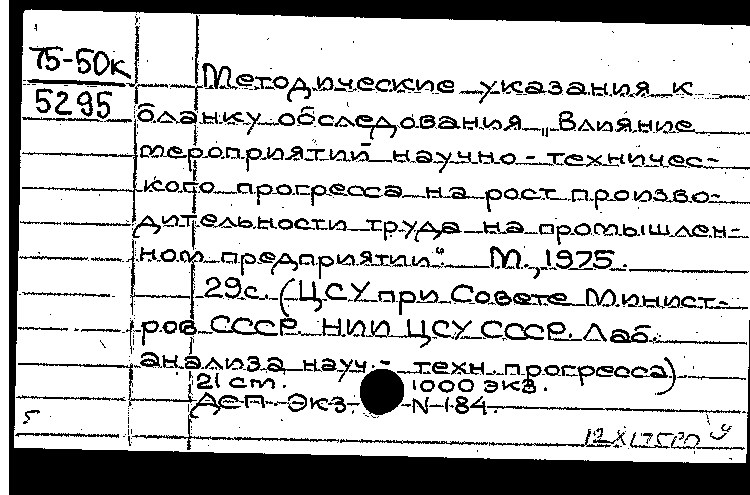 75-50к
5295
Методические указания к
бланку обследования „Влияние
мероприятий научно-техничес-
кого прогресса на рост произво-
дительности труда на промышлен-
ном предприятии“ М., 1975.
29с. (ЦСУ при Совете Минист-
ров СССР. НИИ ЦСУ СССР. Лаб.
анализа науч.- техн. прогресса)
21 cm. 1000 экз.
ДСП- Экз. N-184.
5